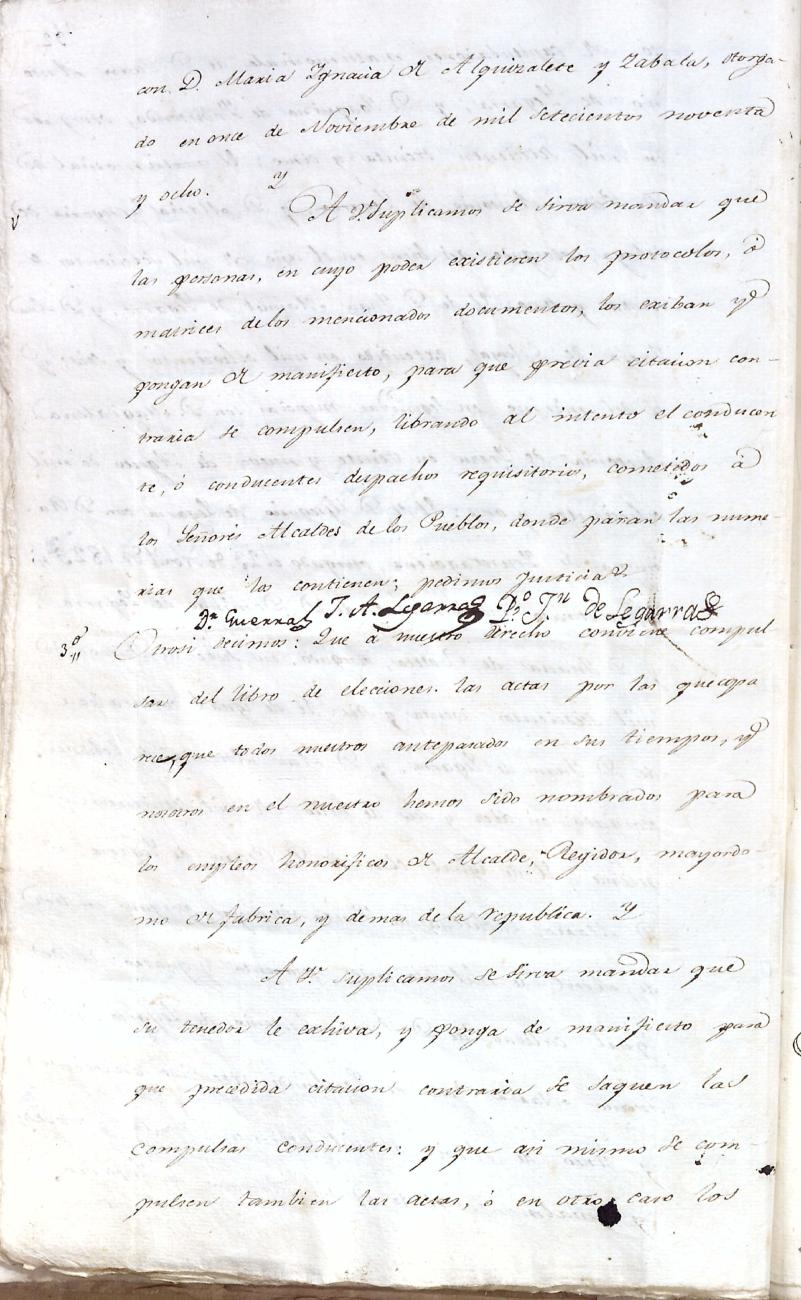 con D. Maria Ygnacia de Alquizalete y Zabala, otorga-
do en once de Noviembre de mil setecientos noventa
y ocho. Y
A V. Suplicamos se sirva mandar que
las personas, en cuyo poder existieren los protocolos, ò
matrices delos mencionados documentos, los exiban y
pongan de manifiesto, para que previa citacion con-
traria se compulsen, librando al intento el conducen
te, ó conducentes despachos requisitorios, cometidos à
los Señores Alcaldes de los Pueblos, donde paran las nume-
rias que los contienen; pedimos Justicia &
Dr. Guerra T. A. Legarra P.o Jn de Legarra
3.o Otrosi decimos: Que a nuestro derecho conviene compul-
sar del libro de elecciones las actas por las que apa
rece, que todos nuestros antepasados en sus tiempos, y
nosotros en el nuestro hemos sido nombrados para
los empleos honorificos de Alcalde, Regidor, mayordo-
mo de fabrica, y demas de la republica. Y
A V. suplicamos se sirva mandar que
su tenedor le exhiva, y ponga de manifiesto para
que precedida citacion contraria se saquen las
compulsas conducentes: y que asi mismo se com-
pulsen tambien las actas, ó en otro caso los